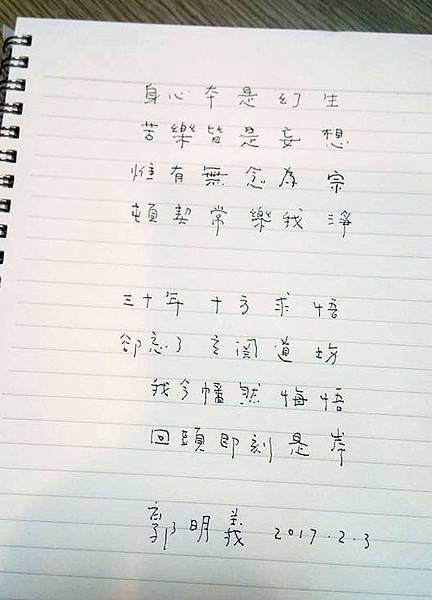 身心本是幻生
苦樂皆是妄想
惟有無念為宗
頓契常樂我淨
三十年十方求悟
卻忘了玄関道坊
我今幡然悔悟
回頭即刻是岸
郭明義 2017.2.3